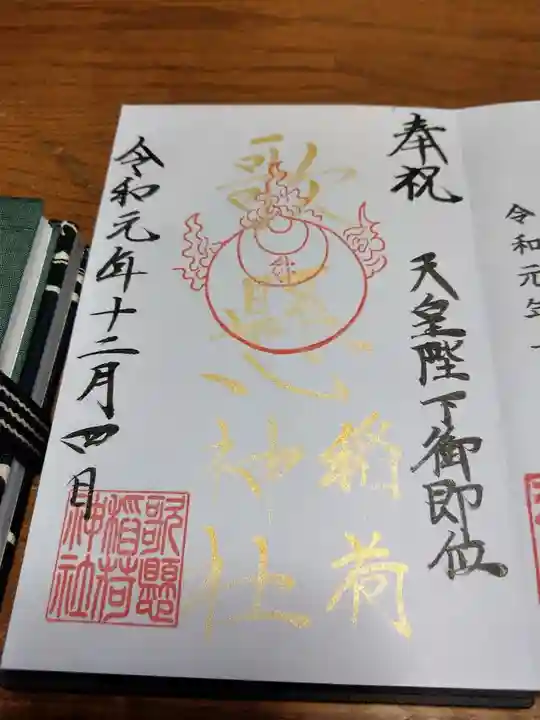 令和元年
奉祝
天皇陛下御即位
歌懸
稲荷
神社
令和元年十二月四日
歌懸
稲荷
神社